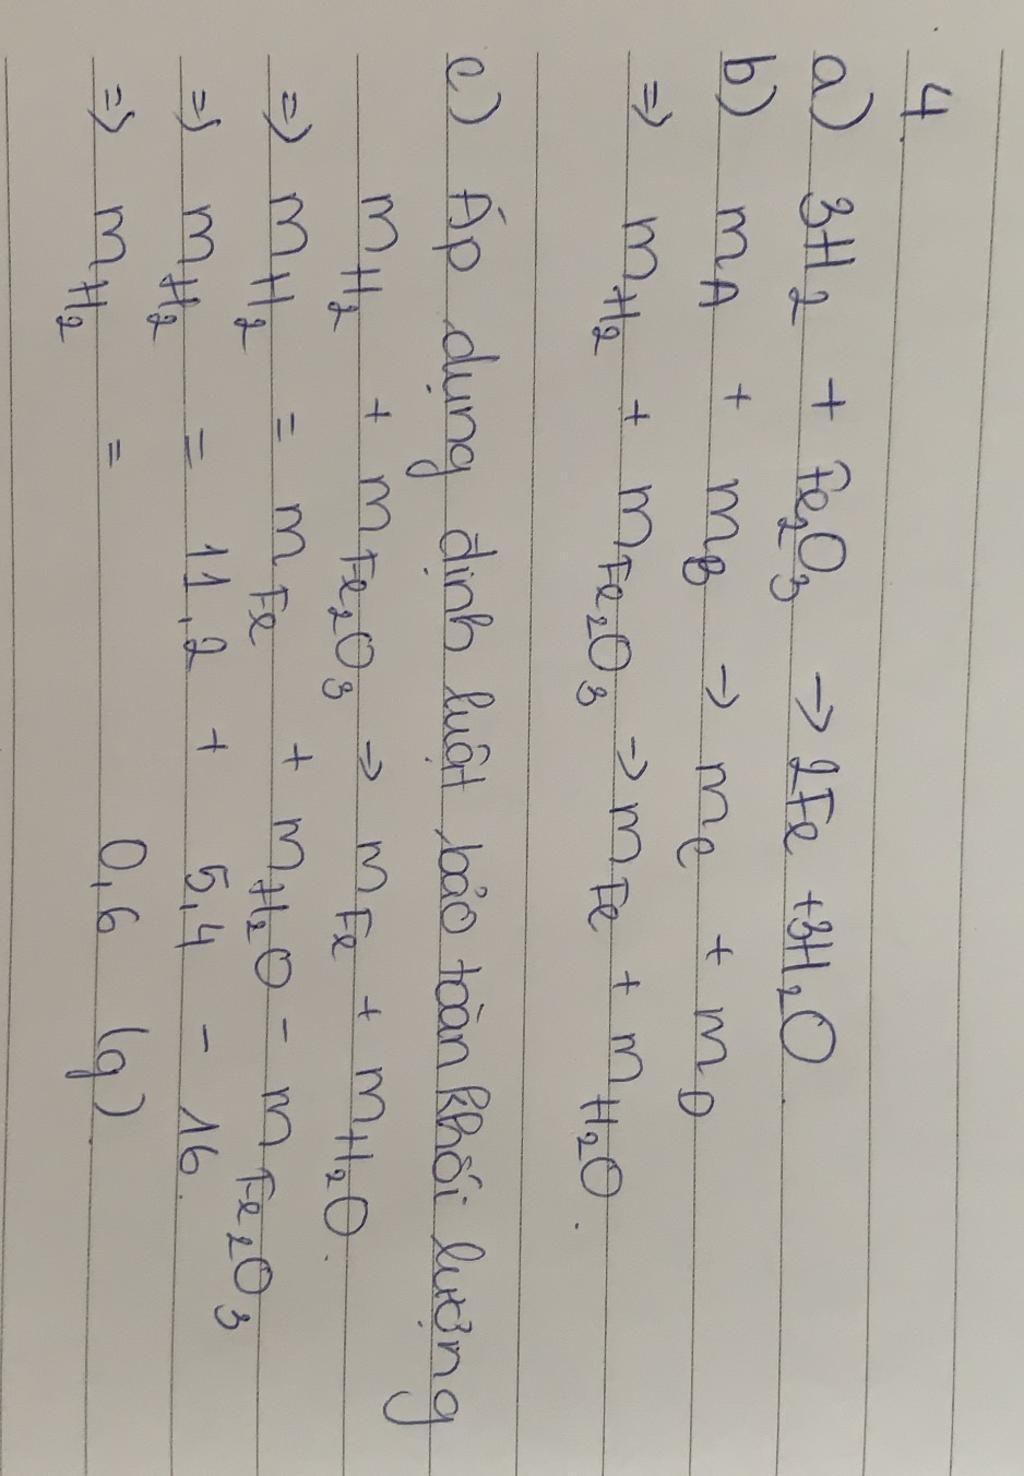 4.
a) 3H₂ + Fe₂O₃ → 2Fe + 3H₂O.
b) mA + mB → mC + mD
⇒ mH₂ + mFe₂O₃ → mFe + mH₂O.
c) Áp dụng định luật bảo toàn khối lượng
mH₂ + mFe₂O₃ → mFe + mH₂O.
⇒ mH₂ = mFe + mH₂O - mFe₂O₃
⇒ mH₂ = 11,2 + 5,4 - 16.
⇒ mH₂ = 0,6 (g).